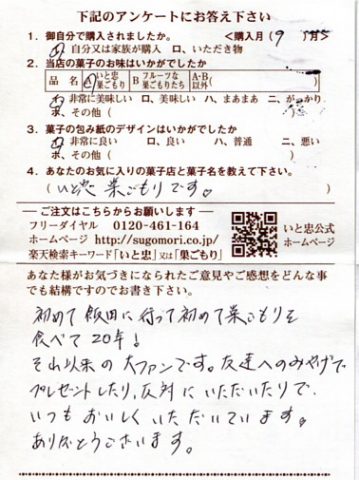 下記のアンケートにお答え下さい
1. 御自分で購入されましたか。 <購入月( 9 )月>
イ、自分又は家族が購入 ロ、いただき物
2. 当店の菓子のお味はいかがでしたか
品 名 A いと忠巣ごもり B フルーツな巣ごもりたち A・B以外( )
イ、非常に美味しい ロ、美味しい ハ、まあまあ ニ、がっかり
ホ、その他( )
3. 菓子の包み紙のデザインはいかがでしたか
イ、非常に良い ロ、良い ハ、普通 ニ、悪い
ホ、その他( )
4. あなたのお気に入りの菓子店と菓子名を教えて下さい。
(いと忠 巣ごもりです。 )
ご注文はこちらからお願いします
フリーダイヤル 0120-461-164
ホームページ http://sugomori.co.jp/
楽天検索キーワード「いと忠」又は「巣ごもり」
いと忠公式
ホームページ
あなた様がお気づきになられたご意見やご感想をどんな事
でも結構ですのでお書き下さい。
初めて飯田に行って初めて巣ごもりを
食べて20年!
それ以来の大ファンです。友達へのみやげで
プレゼントしたり、反対にいただいたりで、
いつもおいしくいただいています。
ありがとうございます。